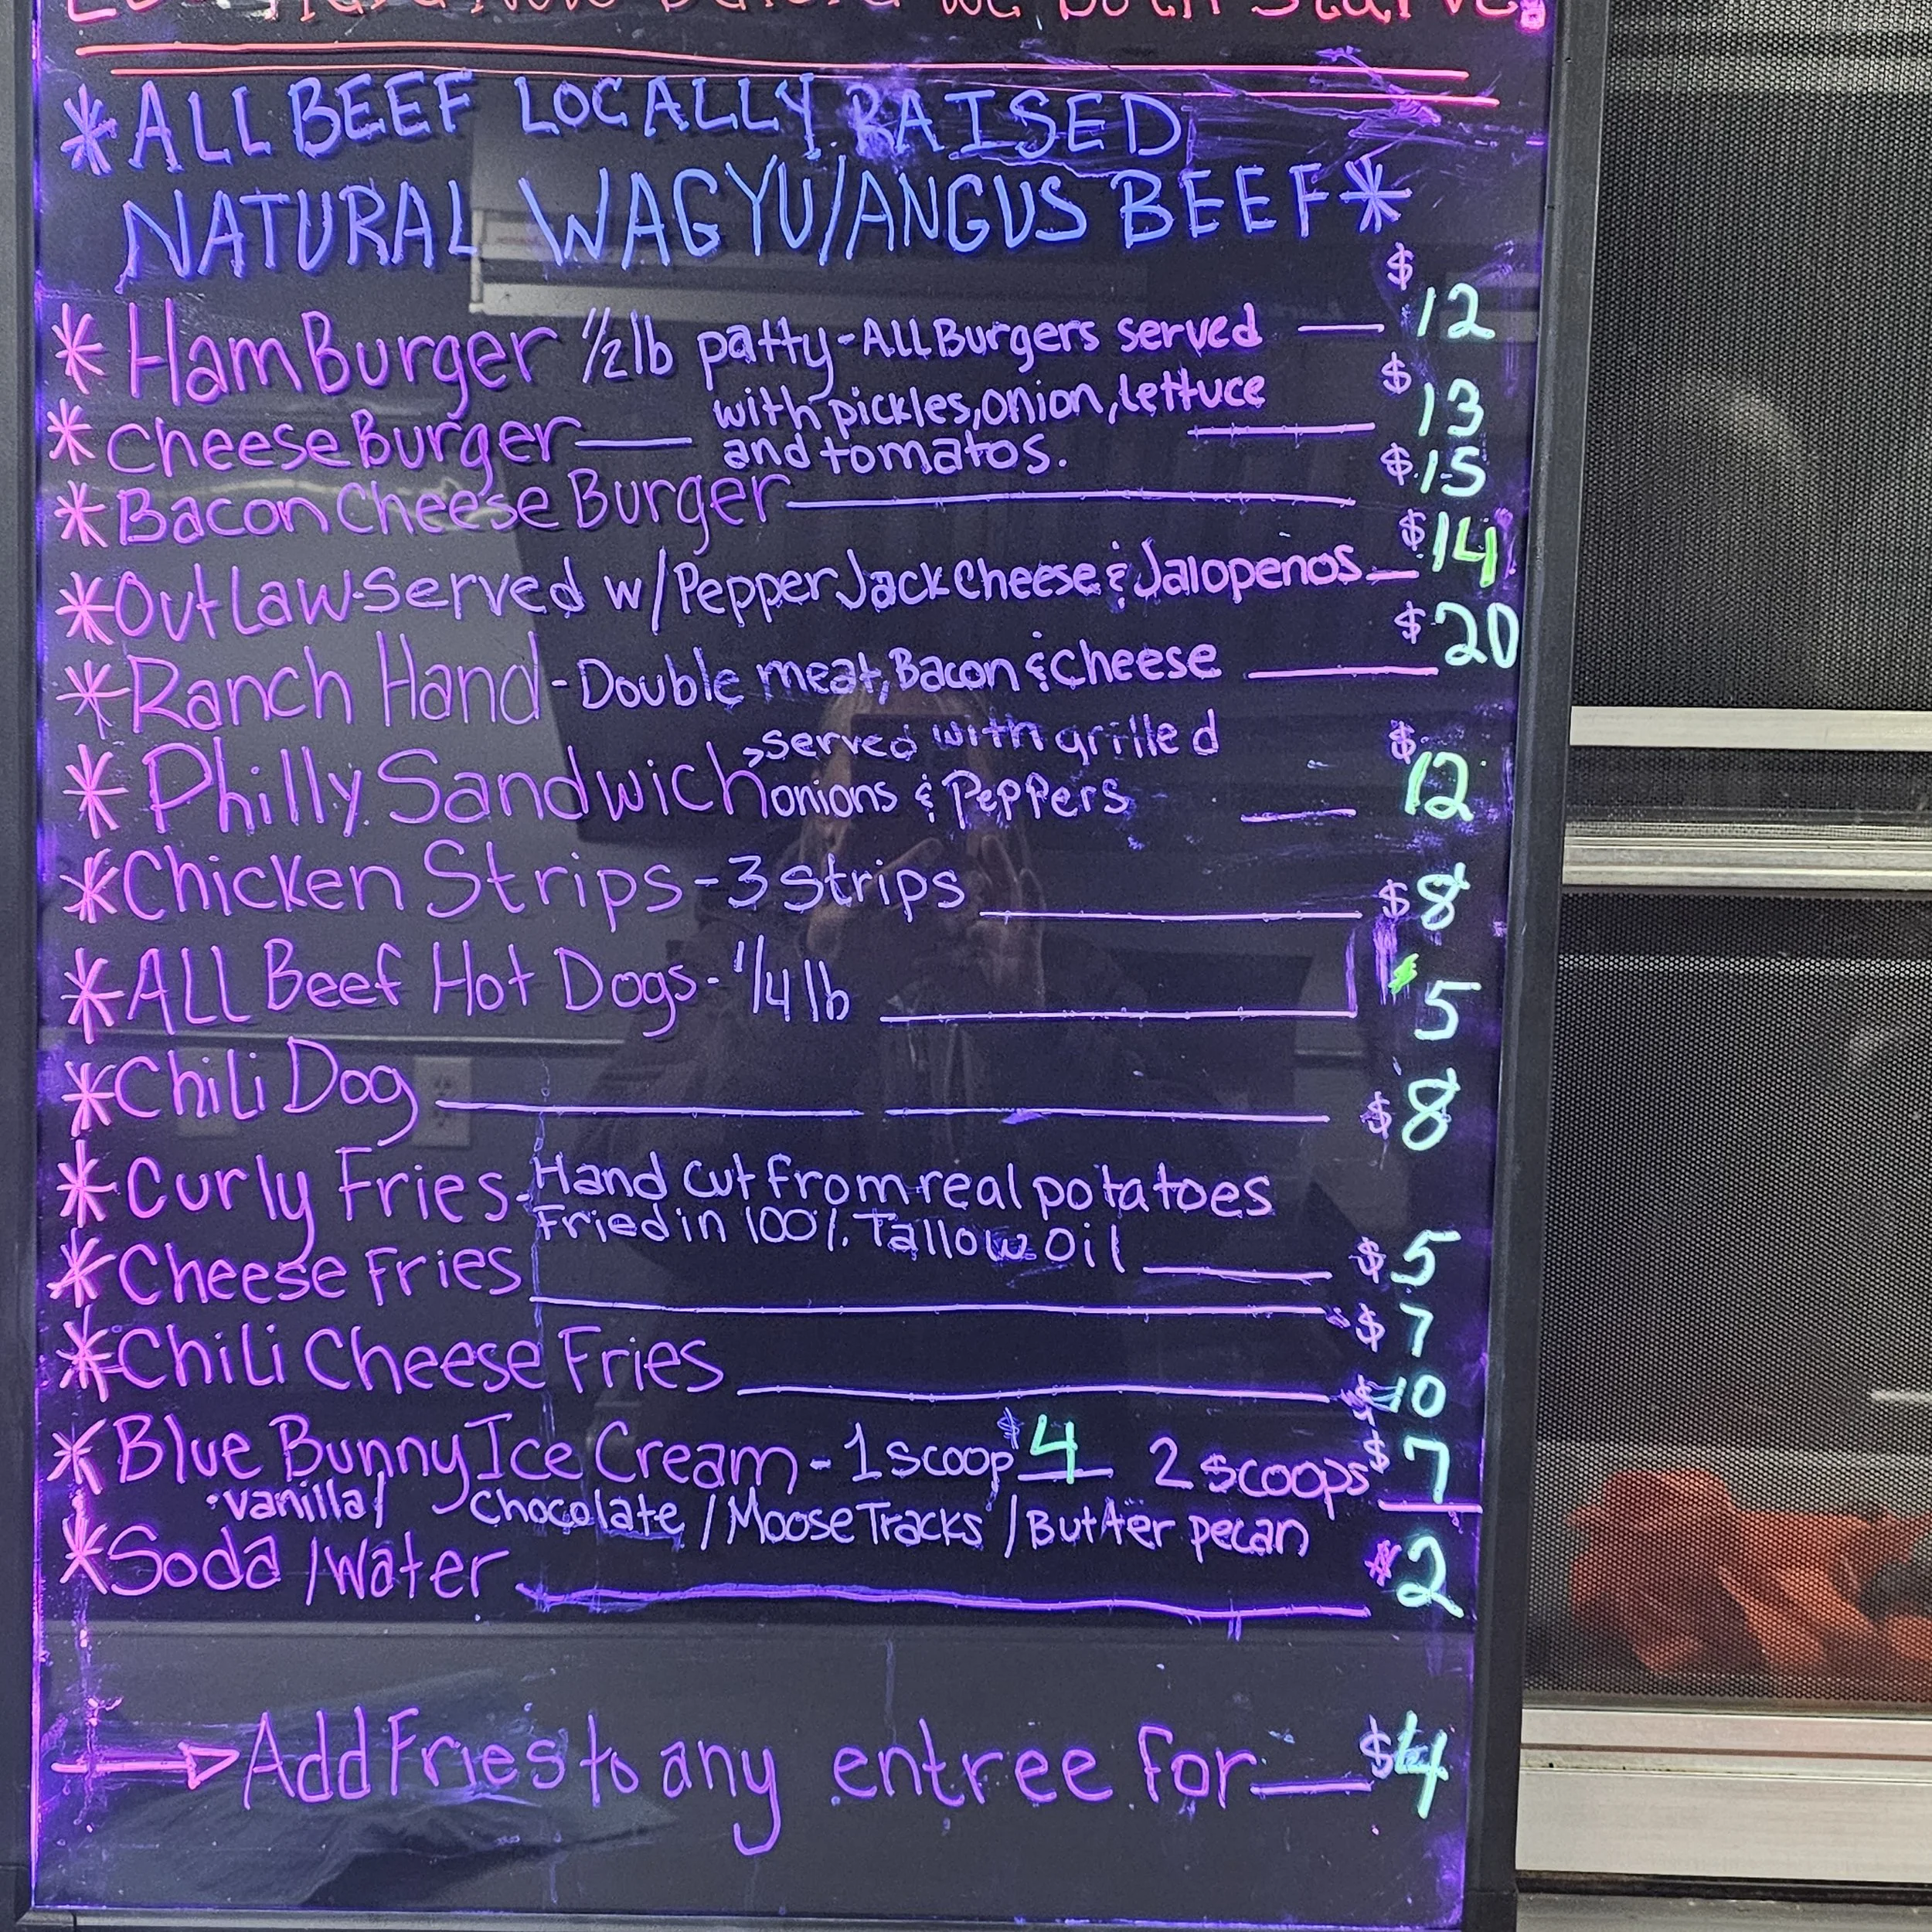 we both starve
*ALL BEEF LOCALLY RAISED
NATURAL WAGYU/ANGUS BEEF*
* HamBurger 1/2 lb patty - All Burgers served — $12
with pickles, onion, lettuce
* CheeseBurger — and tomatos. — $13
* Bacon Cheese Burger — $15
* OutLaw-served w/Pepper Jack Cheese & Jalopenos — $14
* Ranch Hand - Double meat, Bacon & Cheese — $20
* Philly Sandwich, served with grilled
onions & Peppers — $12
* Chicken Strips - 3 strips — $8
* ALL Beef Hot Dogs - 1/4 lb — $5
* Chili Dog — $8
* Curly Fries - Hand cut from real potatoes
Fried in 100% Tallow Oil — $5
* Cheese Fries — $7
* Chili Cheese Fries — $10
* Blue Bunny Ice Cream - 1 scoop $4 2 scoops $7
vanilla / Chocolate / Moose Tracks / Butter pecan
* Soda / Water — $2
Add Fries to any entree for — $4